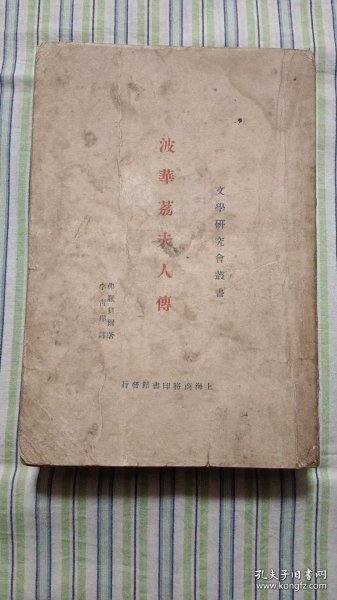 文學研究會叢書
波華荔夫人傳
佛羅貝爾著
李青崖譯
上海商務印書館發行
孔夫子旧书网